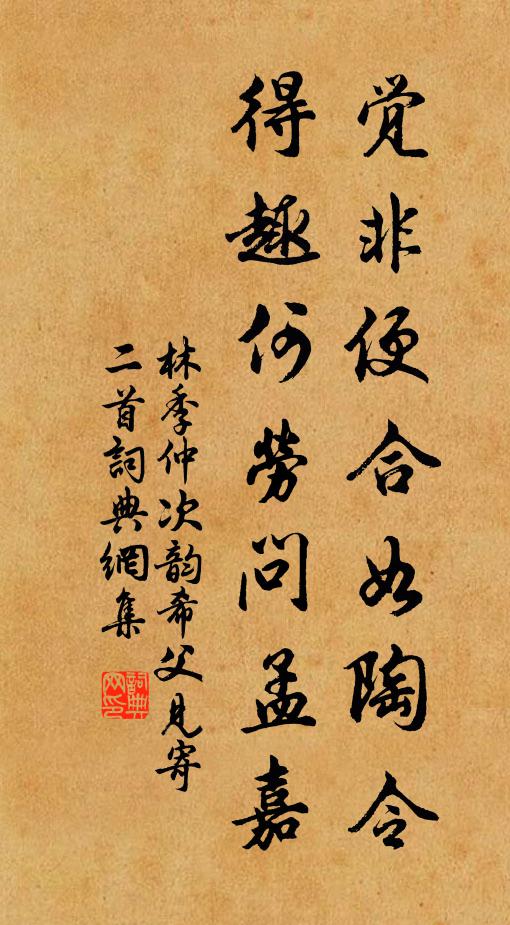 覚非便合如陶令
得趣何勞問孟嘉
林季仲次韵希父見寄
二首詞典網集
詞典
网印